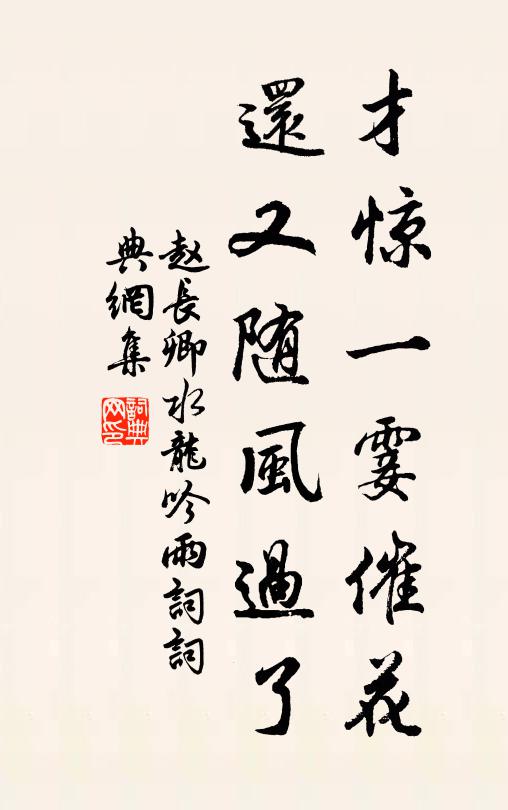 才惊一霎催花
還又随風過了
赵長卿水龍吟雨詞詞
典網集
詞典网印